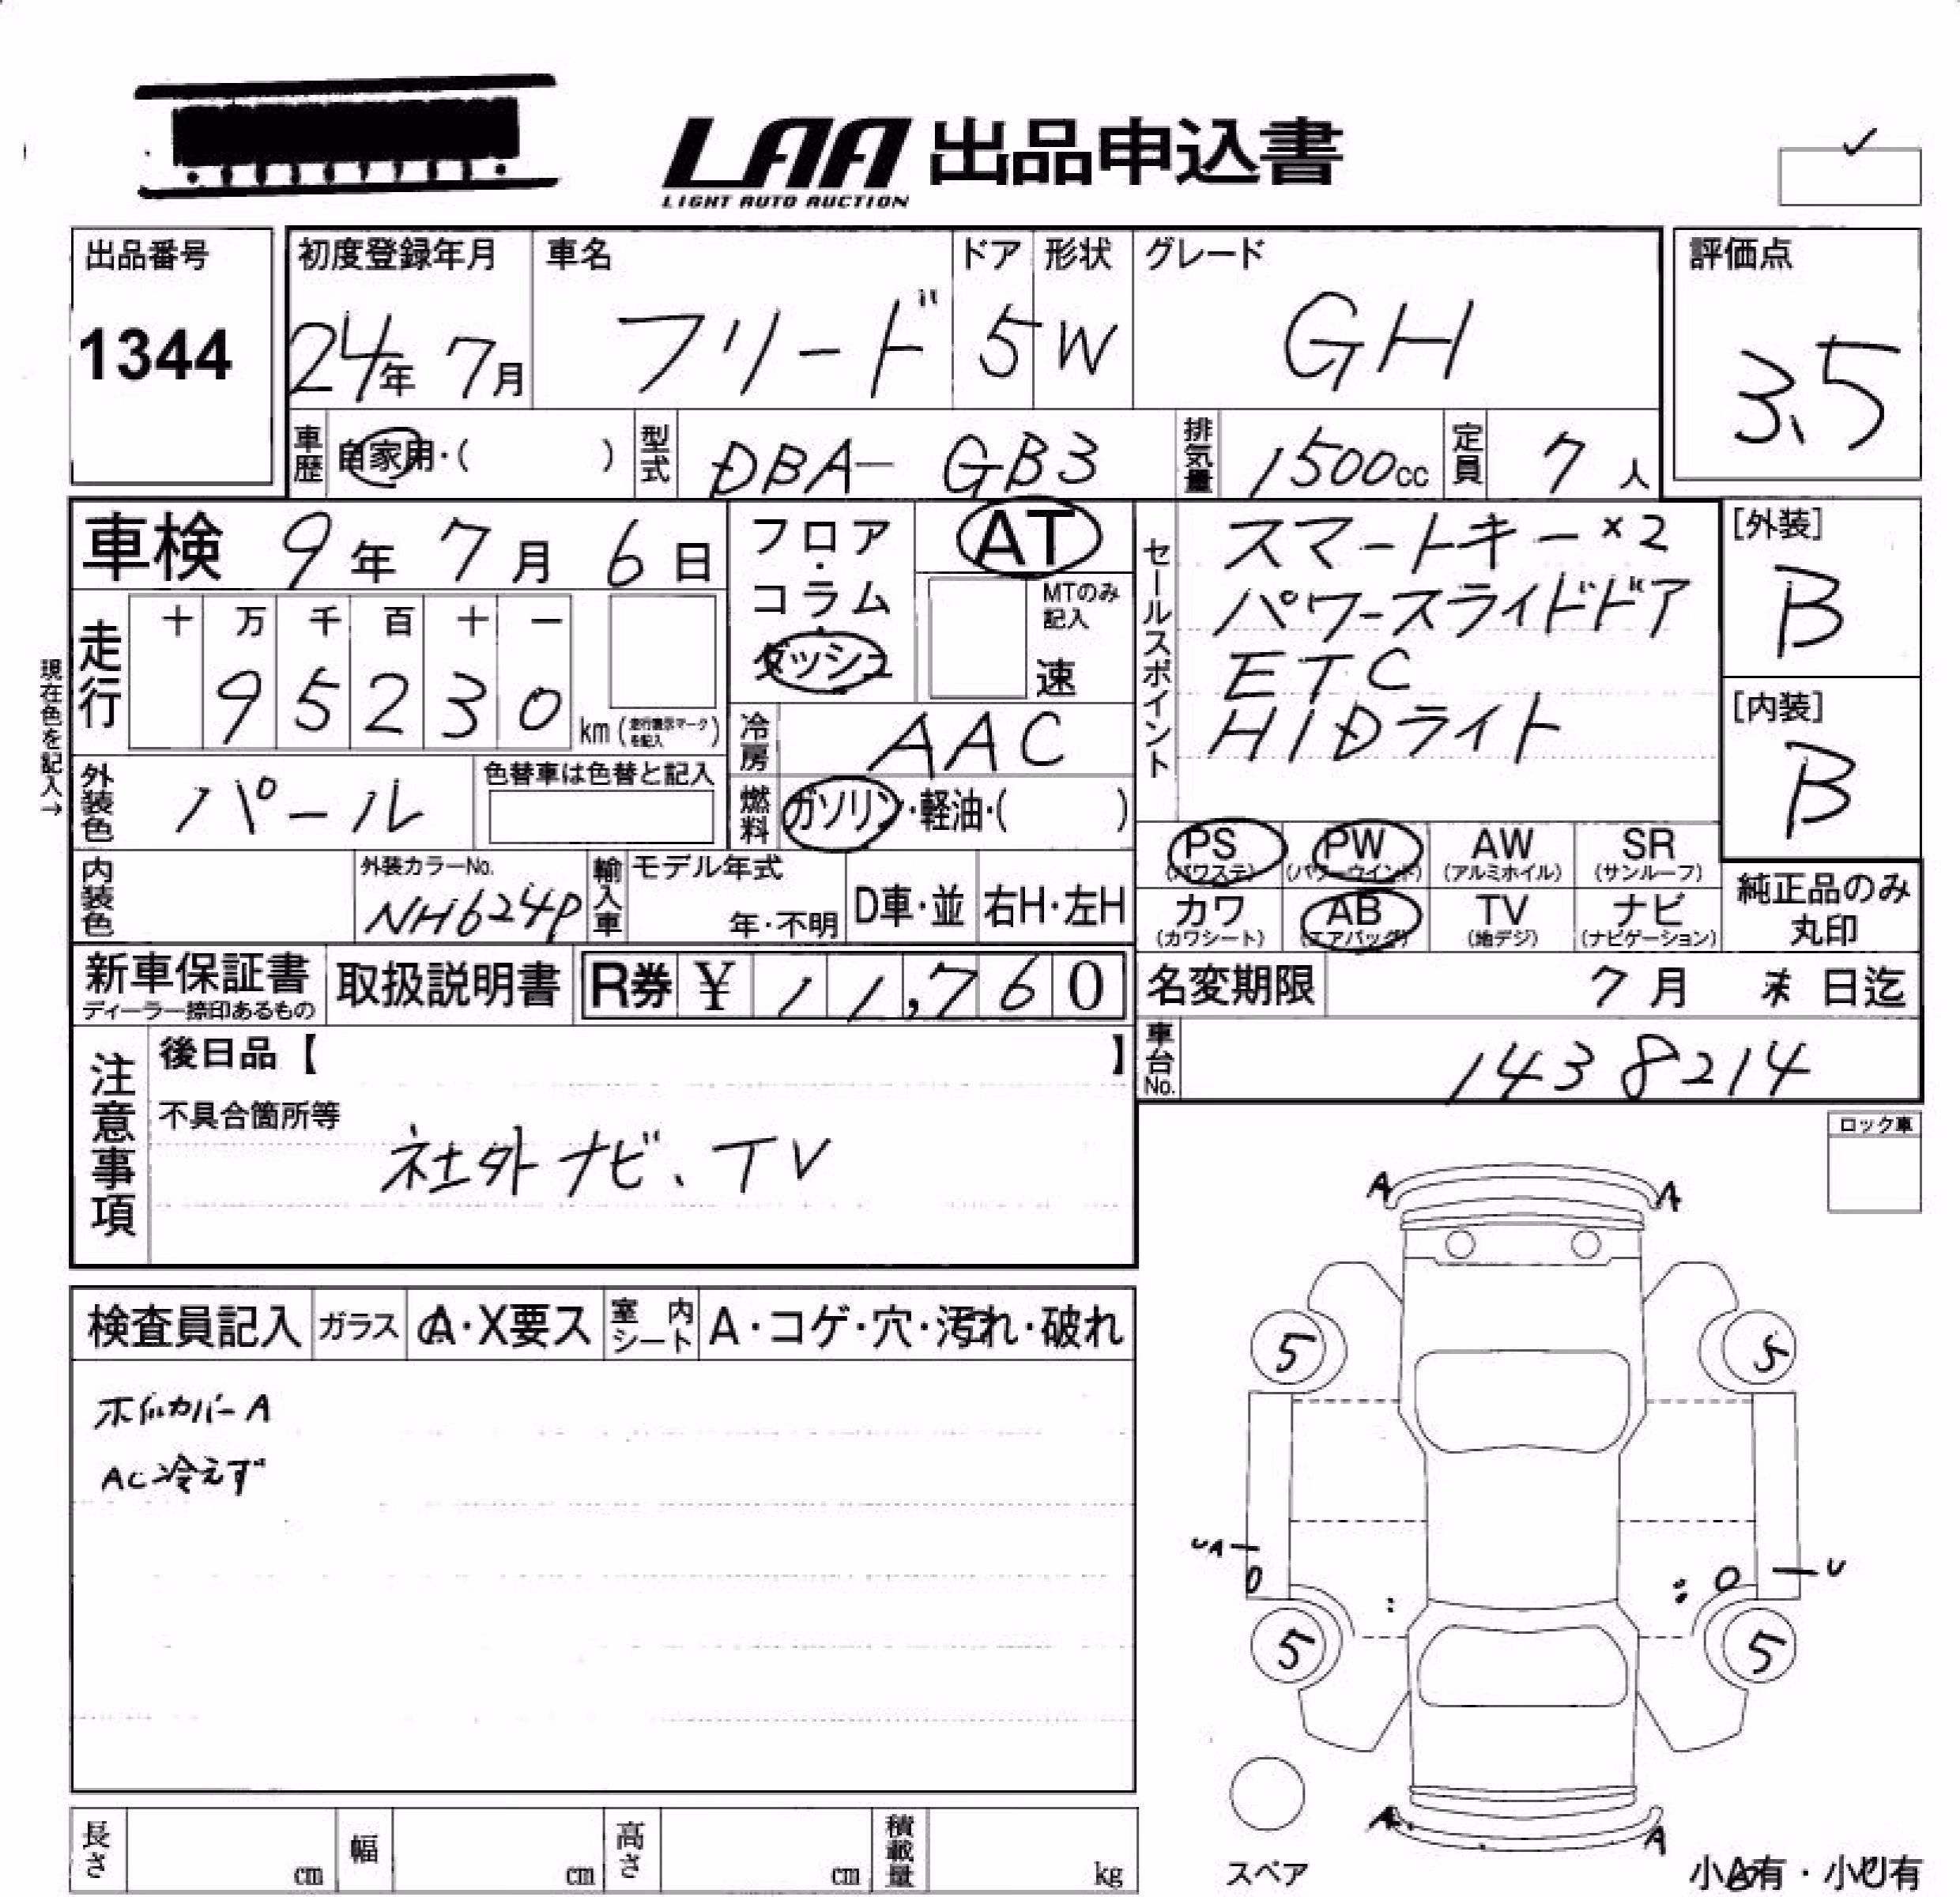 LAA 出品申込書
LIGHT AUTO AUCTION
出品番号
1344
初度登録年月
24年 7月
車名
フリード
ドア
5
形状
W
グレード
GH
評価点
3.5
車歴 自家用・( )
型式 DBA-GB3
排気量 1500cc
定員 7人
車検 9年 7月 6日
フロア・コラム・ダッシュ
AT
MTのみ記入
速
セールスポイント
スマートキー×2
パワースライドドア
ETC
HIDライト
[外装]
B
[内装]
B
現在色を記入→
走行
十 万 千 百 十 一
95230 km (走行表示マークを記入)
冷房 AAC
外装色 パール
色替車は色替と記入
燃料 ガソリン・軽油・( )
PS (パワステ)
PW (パワーウインド)
AW (アルミホイル)
SR (サンルーフ)
カワ (カワシート)
AB (エアバッグ)
TV (地デジ)
ナビ (ナビゲーション)
純正品のみ
丸印
内装色
外装カラーNo.
NH624P
輸入車
モデル年式
年・不明
D車・並
右H・左H
新車保証書
ディーラー捺印あるもの
取扱説明書
R券 ¥ 11,760
名変期限 7月 末日迄
車台No. 1438214
注意事項
後日品【 】
不具合箇所等
社外ナビ、TV
ロック車
検査員記入
ガラス
A・X要ス
室内シート
A・コゲ・穴・汚れ・破れ
ホイルカバーA
AC冷えず
A A
5 5
UA U
5 5
A A
スペア
小A有・小U有
長さ cm
幅 cm
高さ cm
積載量 kg